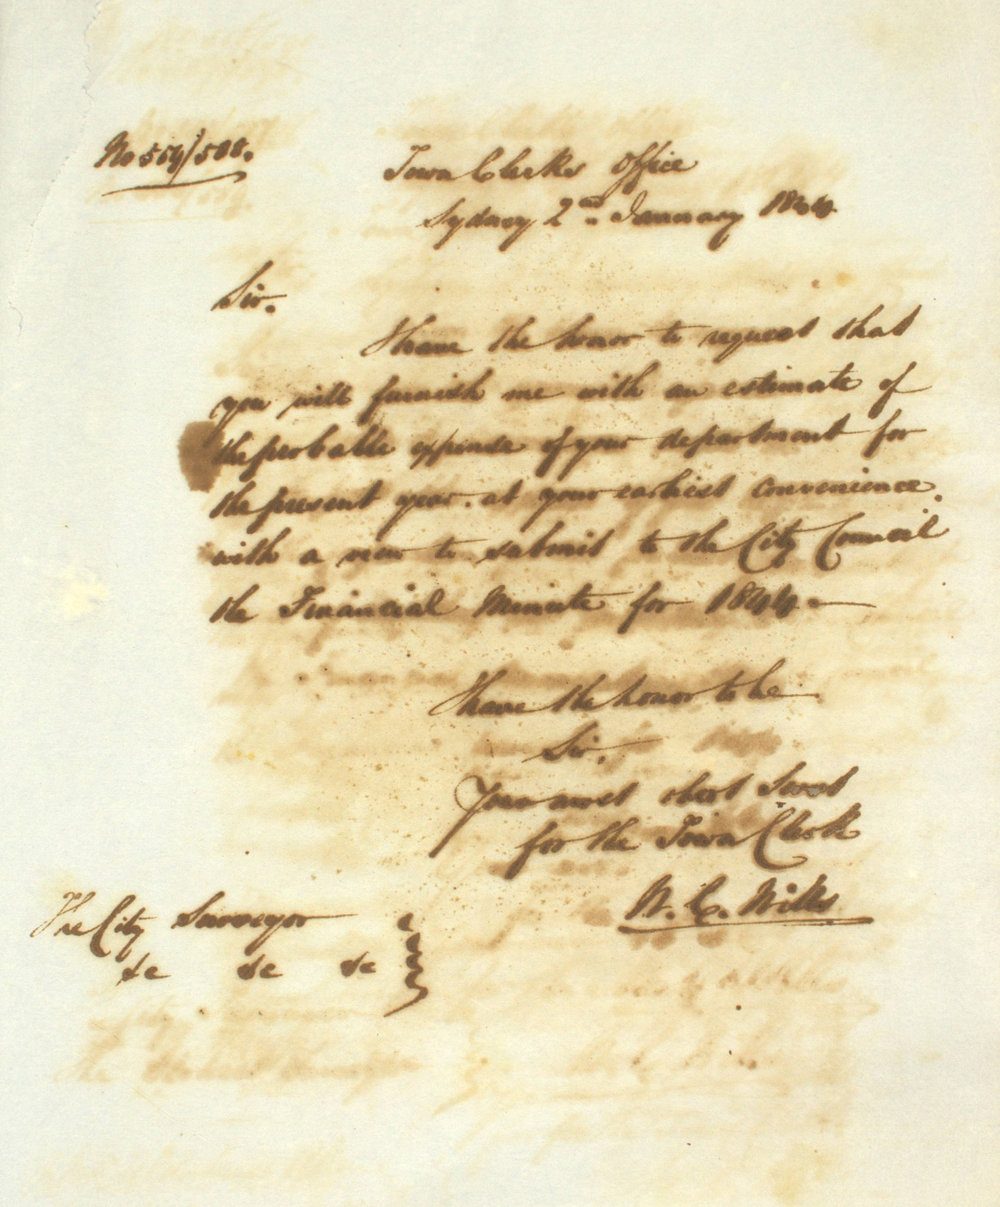 No 559/508.
Town Clerks Office
Sydney 2nd. January 1844.
Sir.
I have the honor to request that
you will furnish me with an estimate of
the probable expense of your department for
the present year. at your earliest convenience.
with a view to submit to the City Council
the Financial Minute for 1844.—
I have the honor to be
Sir.
Your most obedt Servt
for the Town Clerk
W. C. Wills
The City Surveyor
&c &c &c